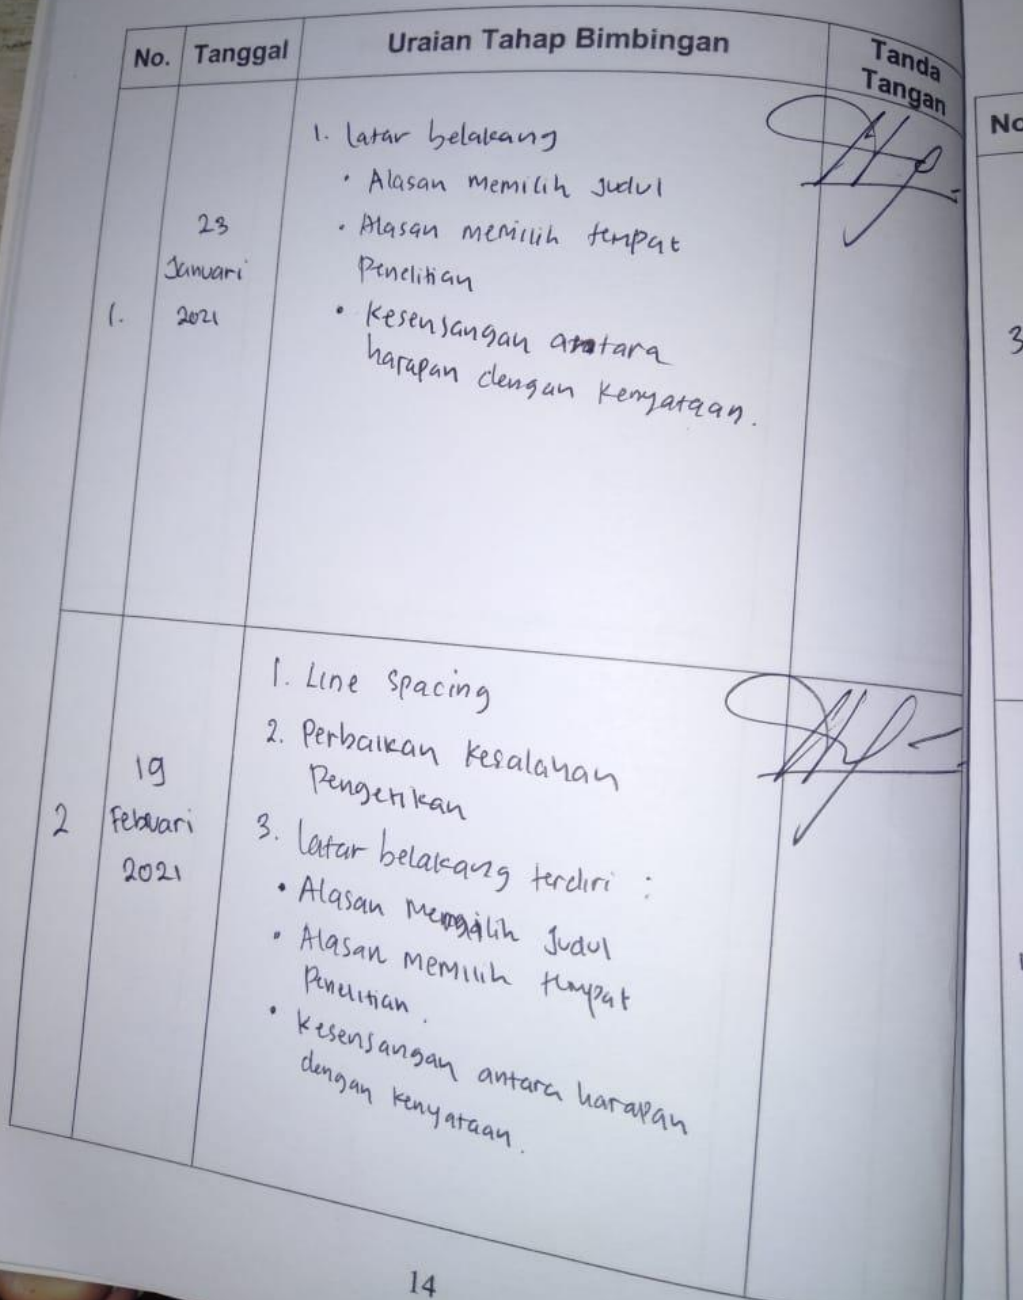 No. Tanggal Uraian Tahap Bimbingan Tanda
Tangan
1. Latar belakang
• Alasan memilih judul
• Alasan memilih tempat
Penelitian
• Kesensangan antara
harapan dengan kenyataan.
23
Januari
1. 2021
1. Line spacing
2. Perbaikan kesalahan
Pengetikan
3. Latar belakang terdiri :
• Alasan memilih judul
• Alasan memilih tempat
Penelitian.
• Kesensangan antara harapan
dengan kenyataan.
19
2 Febuari
2021
14
No
3